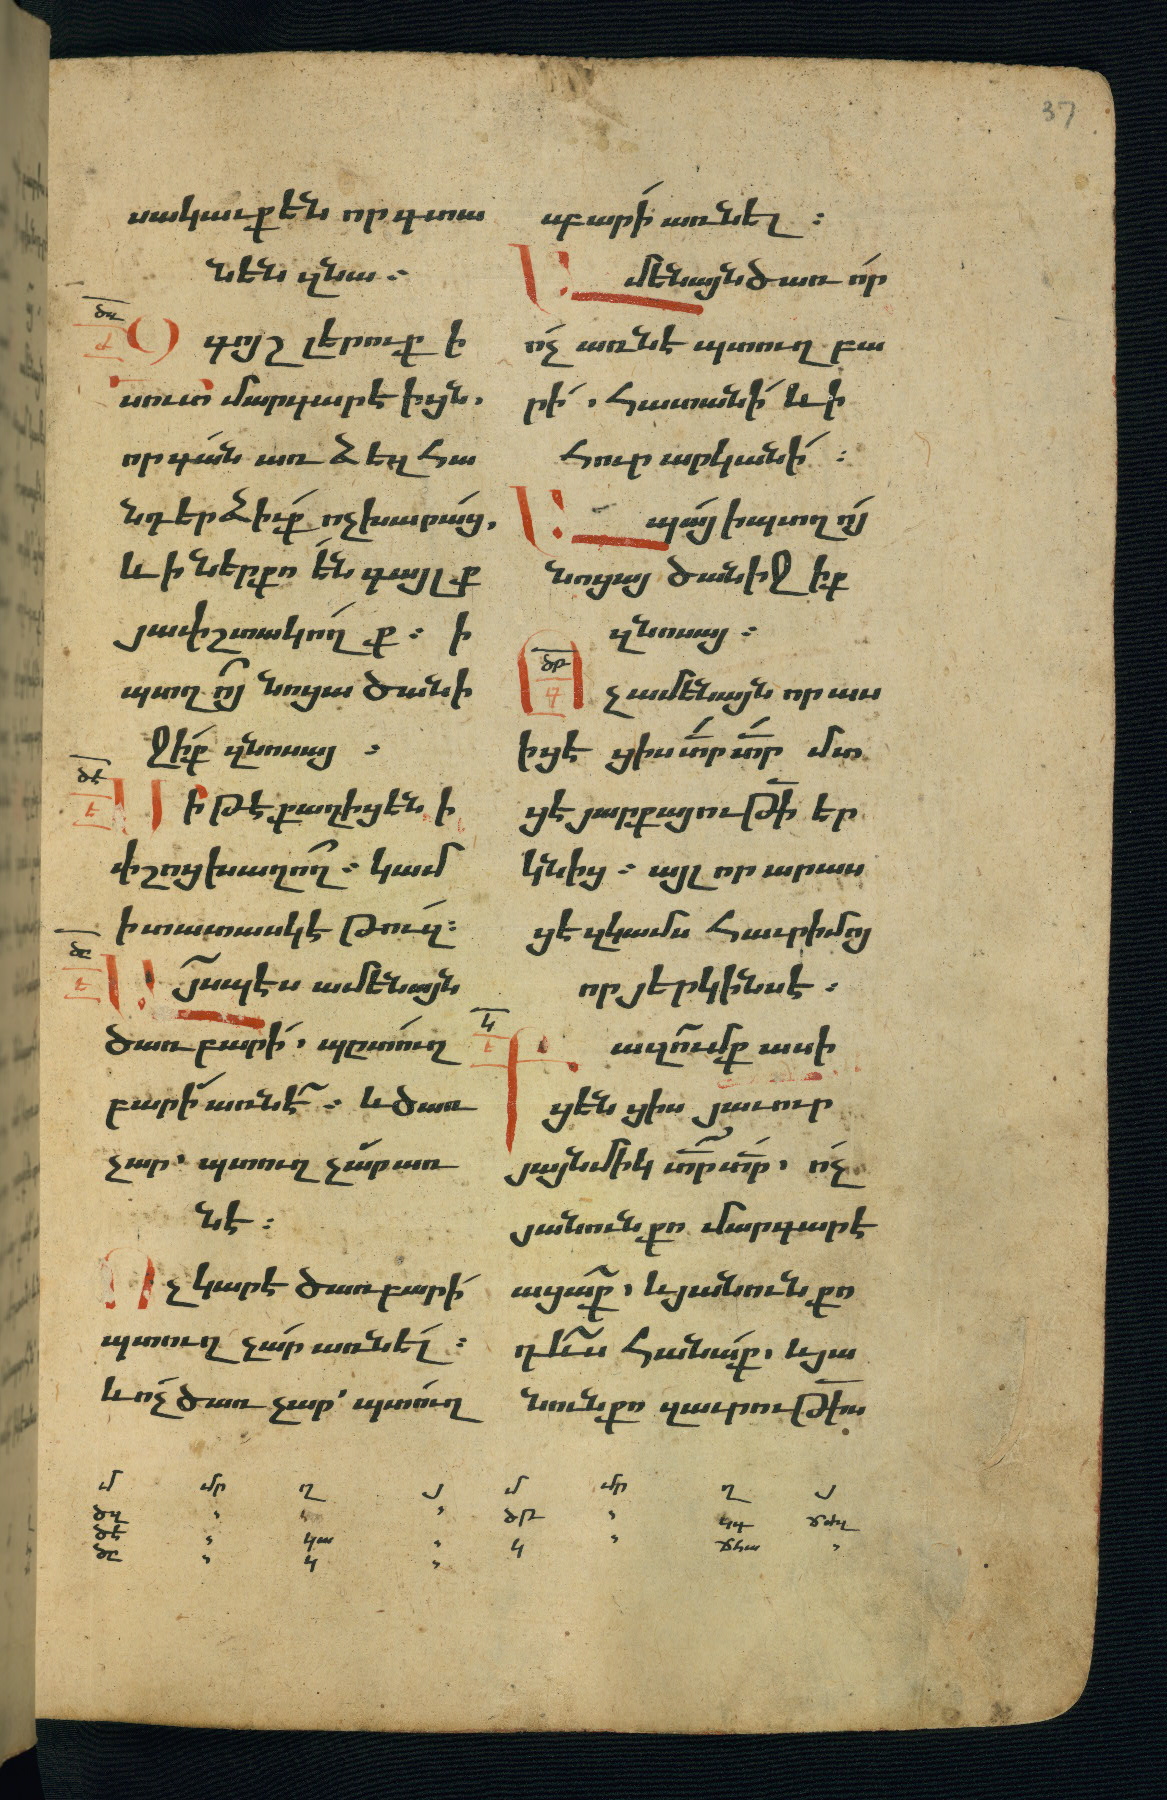 37
սակաւք են որ գտա
նեն զնա ։
Զգոյշ լերուք ի
սուտ մարգարէիցն,
որ գան առ ձեզ հա
նդերձիւք ոչխարաց,
և ի ներքո են գայլք
յափշտակողք ։ ի
պտղոյ նոցա ծանի
ջիք զնոսայ ։
Միթէ քաղիցեն ի
փշոց խաղող ։ կամ
ի տատասկէ թուզ ։
Այսպէս ամենայն
ծառ բարի, պըտուղ
բարի առնէ ։ և ծառ
չար՝ պտուղ չար առ
նէ ։
Ոչ կարէ ծառ բարի
պտուղ չար առնել ։
և ոչ ծառ չար՝ պտուղ
բարի առնել ։
Ամենայն ծառ որ
ոչ առնէ պտուղ բա
րի, հատանի և ի
հուր արկանի ։
Ապայ ի պտղոյ
նոցայ ծանիջիք
զնոսայ ։
Ոչ ամենայն որ աս
իցէ ցիս տր տր մտ
ցէ յարքայութի եր
կնից ։ այլ որ արաս
ցէ զկամս հաւր իմոյ
որ յերկինս է ։
Բազումք ասի
ցեն ցիս յաւուր
յայնմիկ տր տր, ոչ
յանուն քո մարգարէ
ացաք, և յանուն քո
դևս հանաք, և յա
նուն քո զաւրութիս
մ մր ղ յ մ մր ղ յ
ծզ ծթ
ծէ կա կ
ծը կ